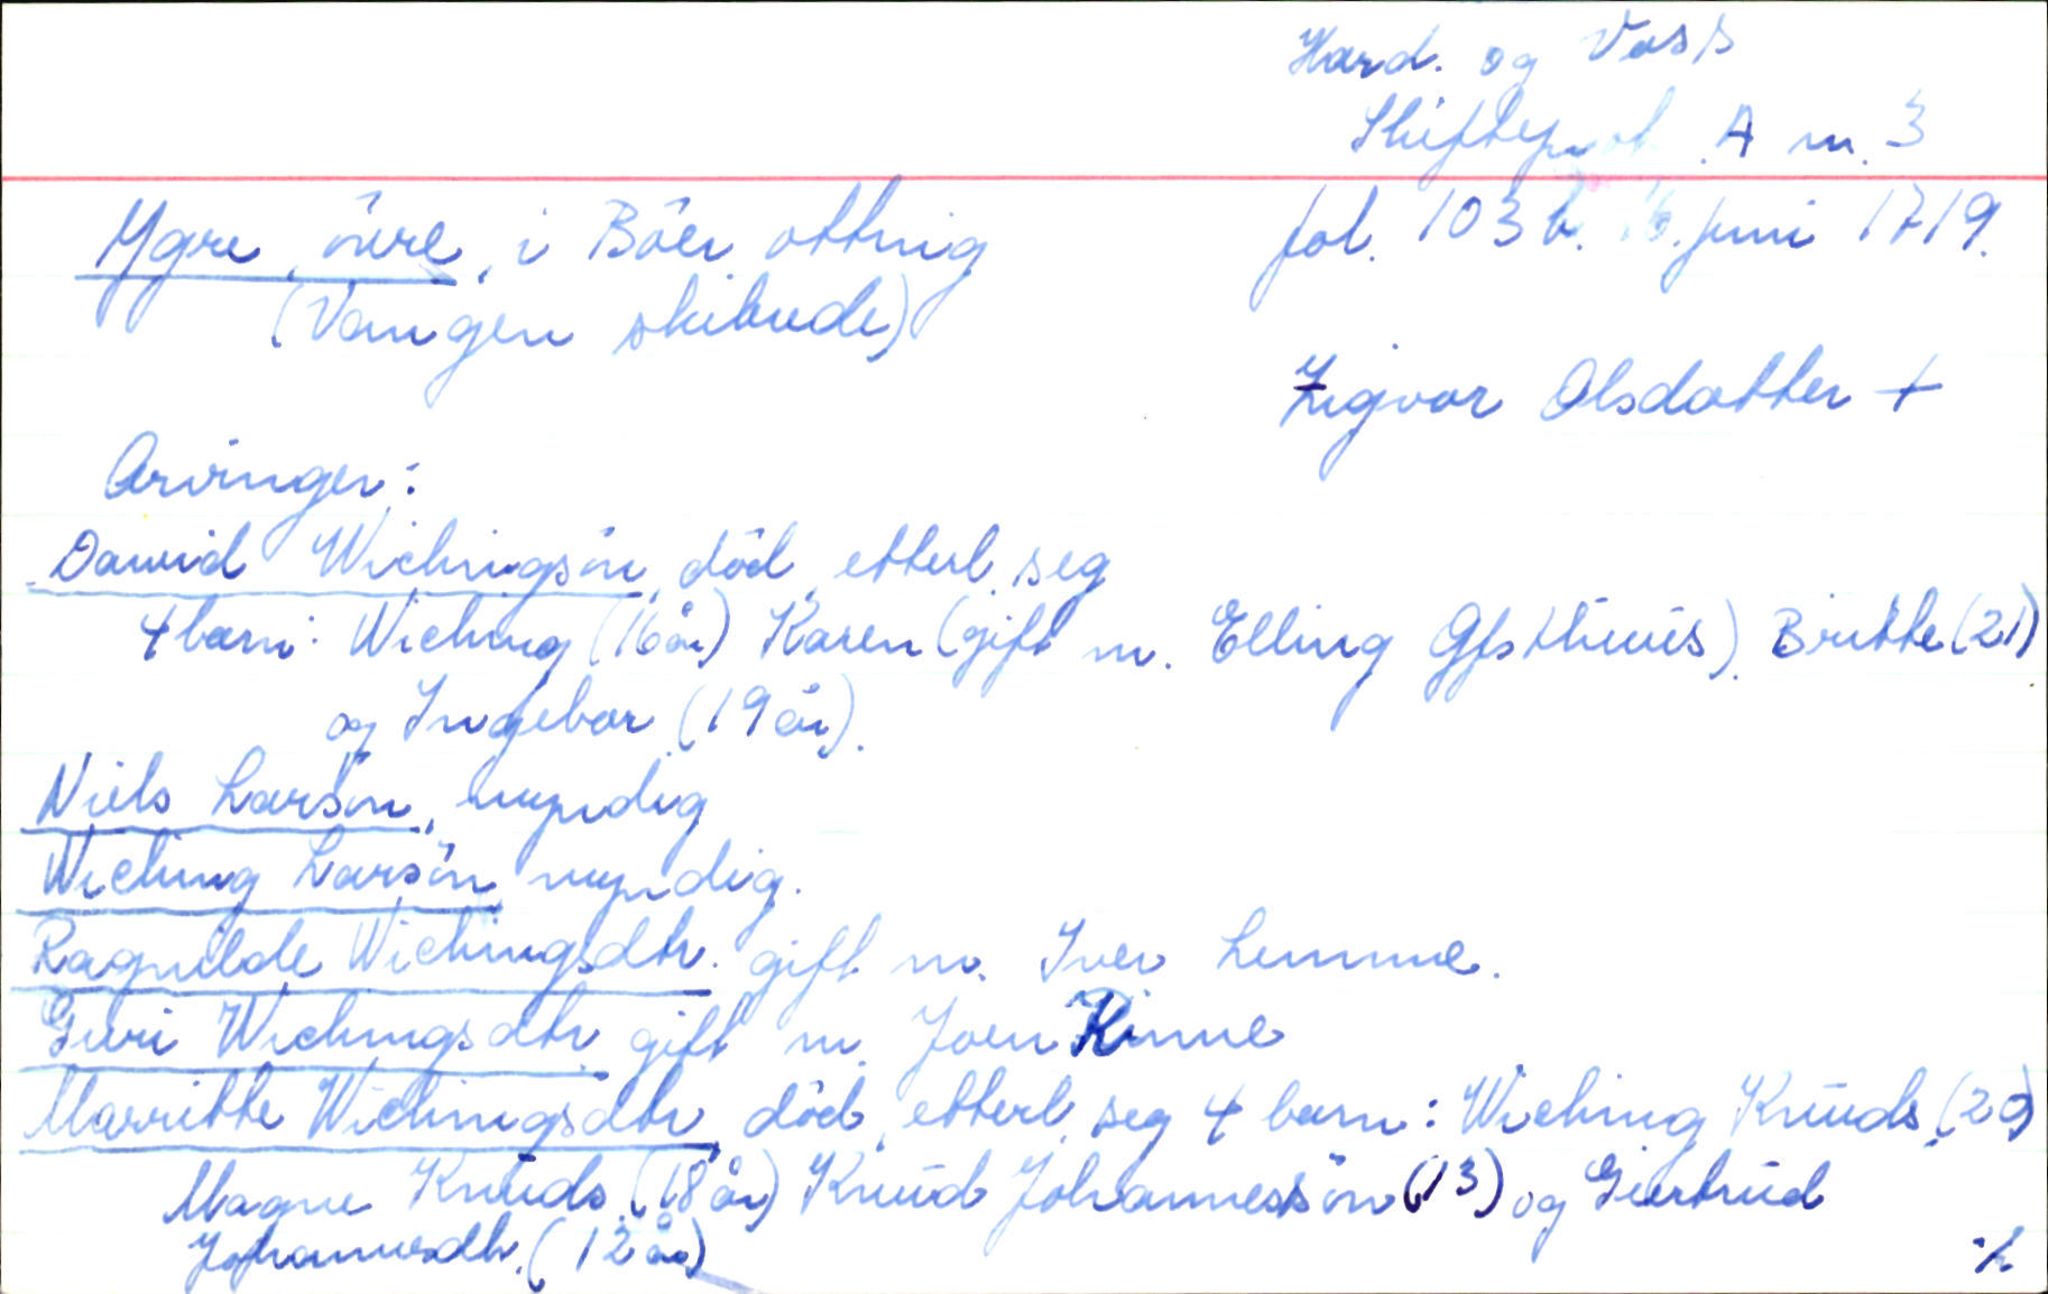 Hard. og Voss
Skifteprot. A nr. 3
Ygre, övre, i Böer ottnig fol. 103 b. 16. juni 1719.
(Vangen skibrede)
Zigvor Olsdatter +
Arvinger:
Dawid Wichingsön, död, etterl. seg
4 barn: Wiching (16 år) Karen (gift m. Elling Giesthuus). Britte (21)
og Ingebor (19 år).
Niels Larsön, myndig
Wiching Larsön myndig.
Ragnilde Wichingsdtr. gift m. Iver Lemme.
Guri Wichingsdtr. gift m. Joen Rinne
Marritte Wichingsdtr, död, etterl. seg 4 barn: Wiching Knuds. (20)
Magne Knuds. (18 år) Knud Johannessön (13) og Giertrud
Johannesdtr. (12 år)